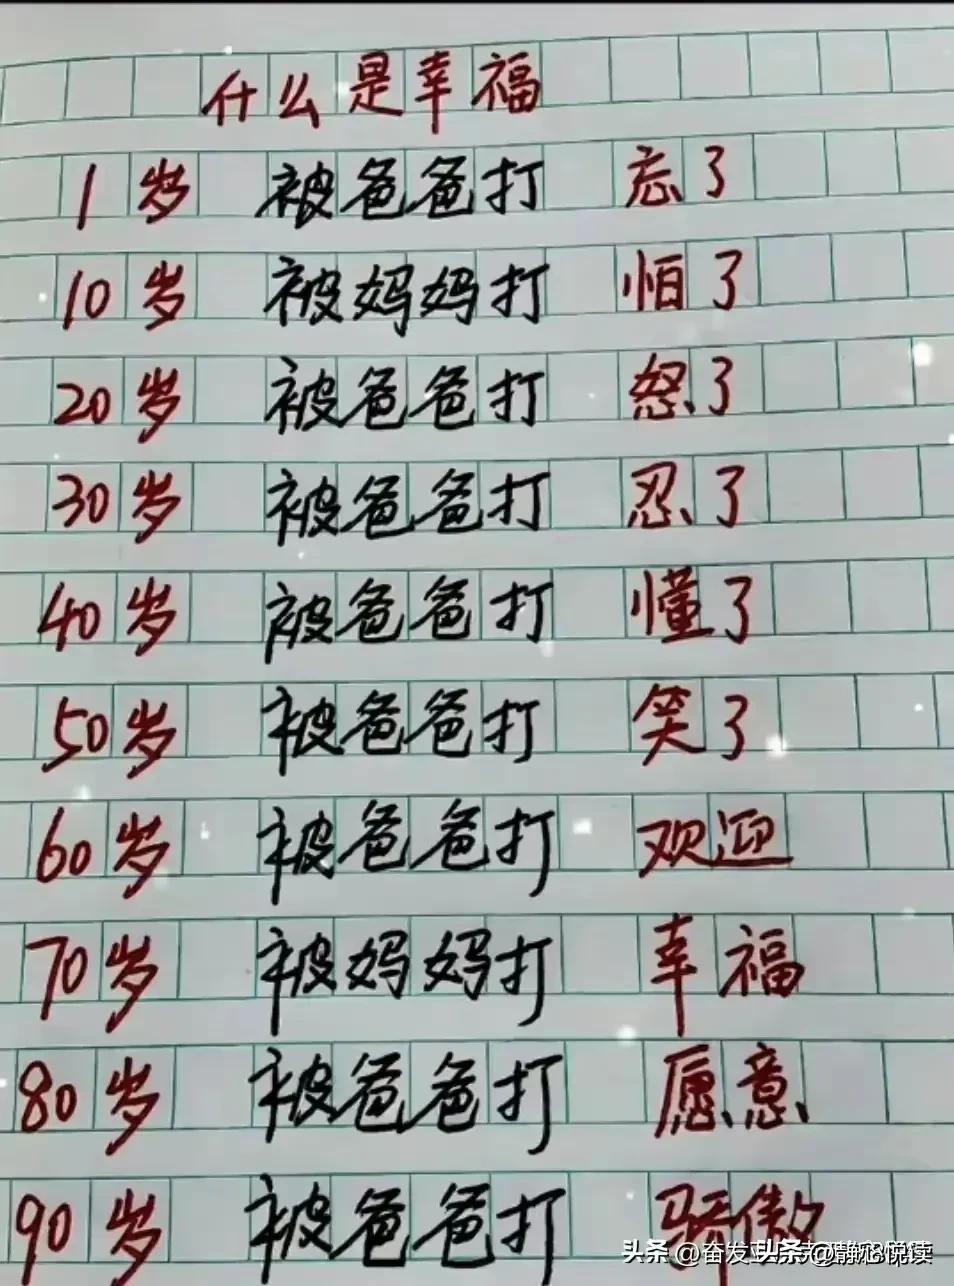 什么是幸福
1岁 被爸爸打 忘了
10岁 被妈妈打 怕了
20岁 被爸爸打 怒了
30岁 被爸爸打 忍了
40岁 被爸爸打 懂了
50岁 被爸爸打 笑了
60岁 被爸爸打 欢迎
70岁 被妈妈打 幸福
80岁 被爸爸打 愿意
90岁 被爸爸打 骄傲
头条 @奋发 头条 @静心悦读